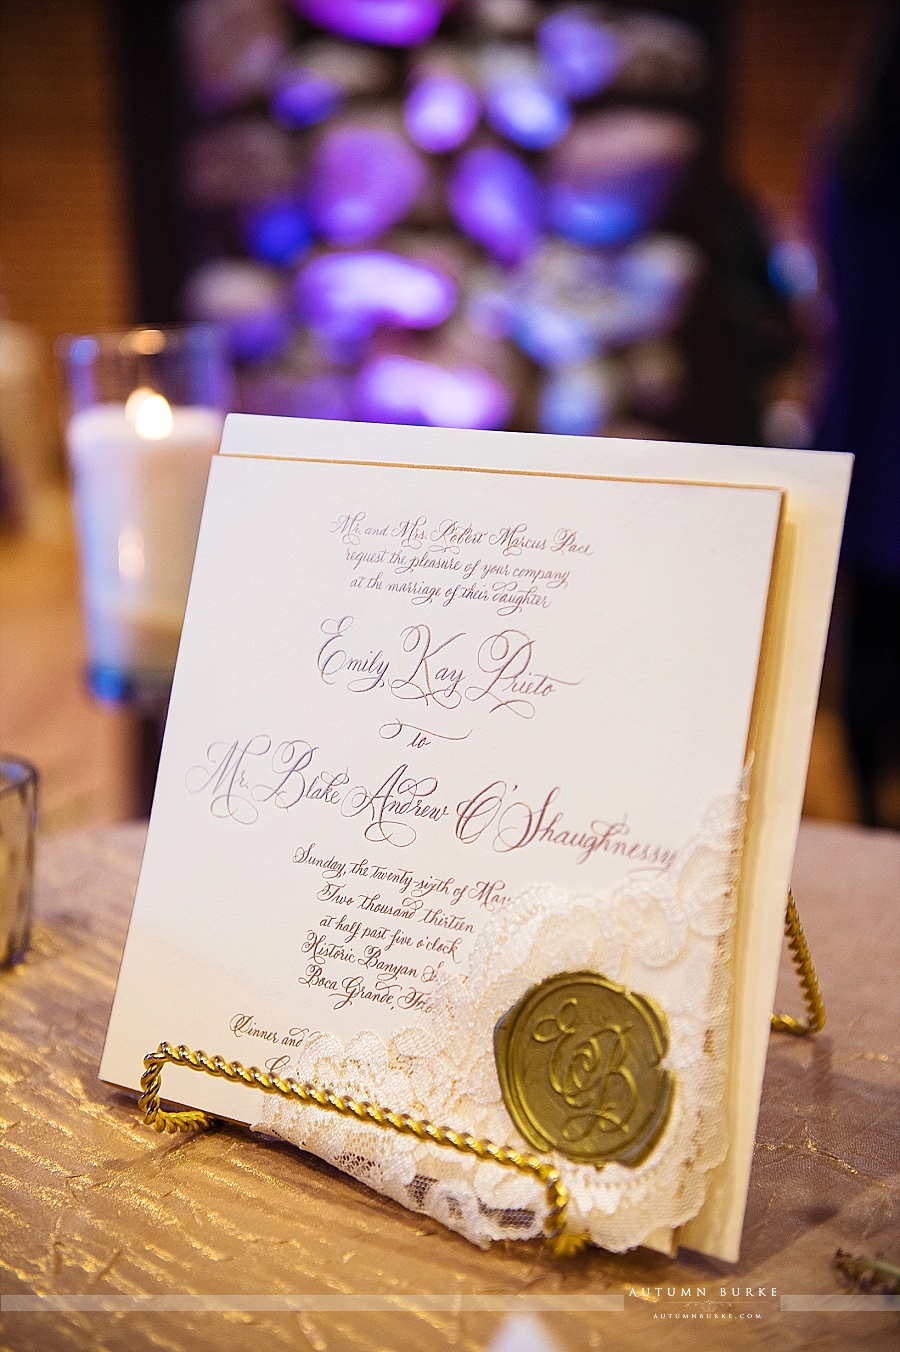 Mr. and Mrs. Robert Marcus Pace
request the pleasure of your company
at the marriage of their daughter
Emily Kay Prieto
to
Mr. Blake Andrew O'Shaughnessy
Sunday, the twenty-sixth of May
Two thousand thirteen
at half past five o'clock
Historic Banyan
Boca Grande,
Dinner and
E&B
AUTUMN BURKE
AUTUMNBURKE.COM